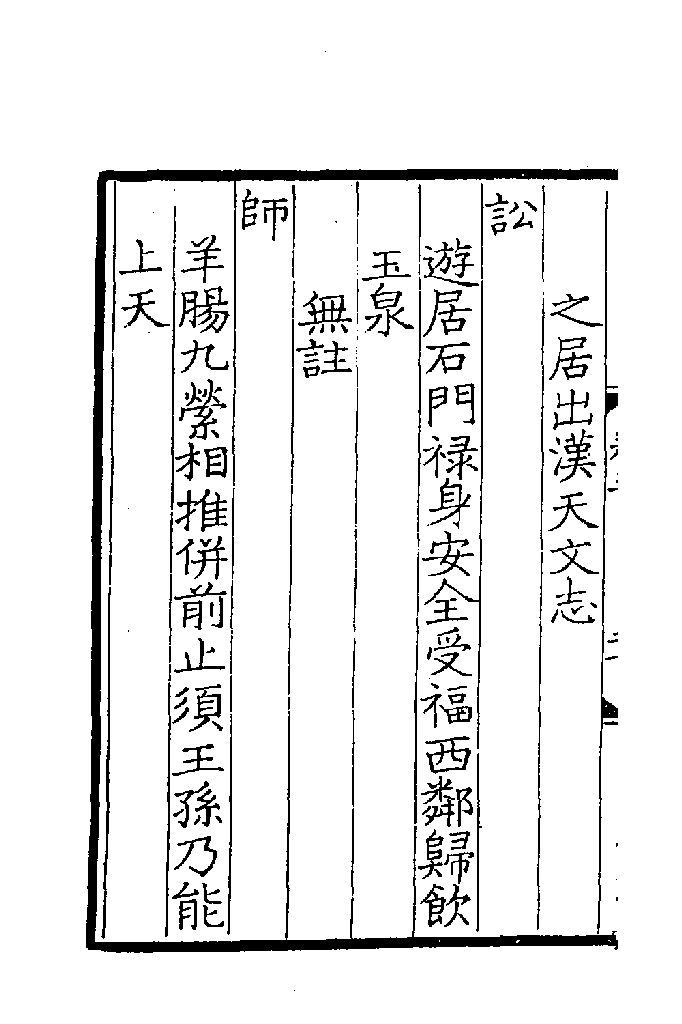 之居出漢天文志
訟
遊居石門祿身安全受福西鄰歸飲
玉泉
無註
師
羊腸九縈相推併前止須王孫乃能
上天